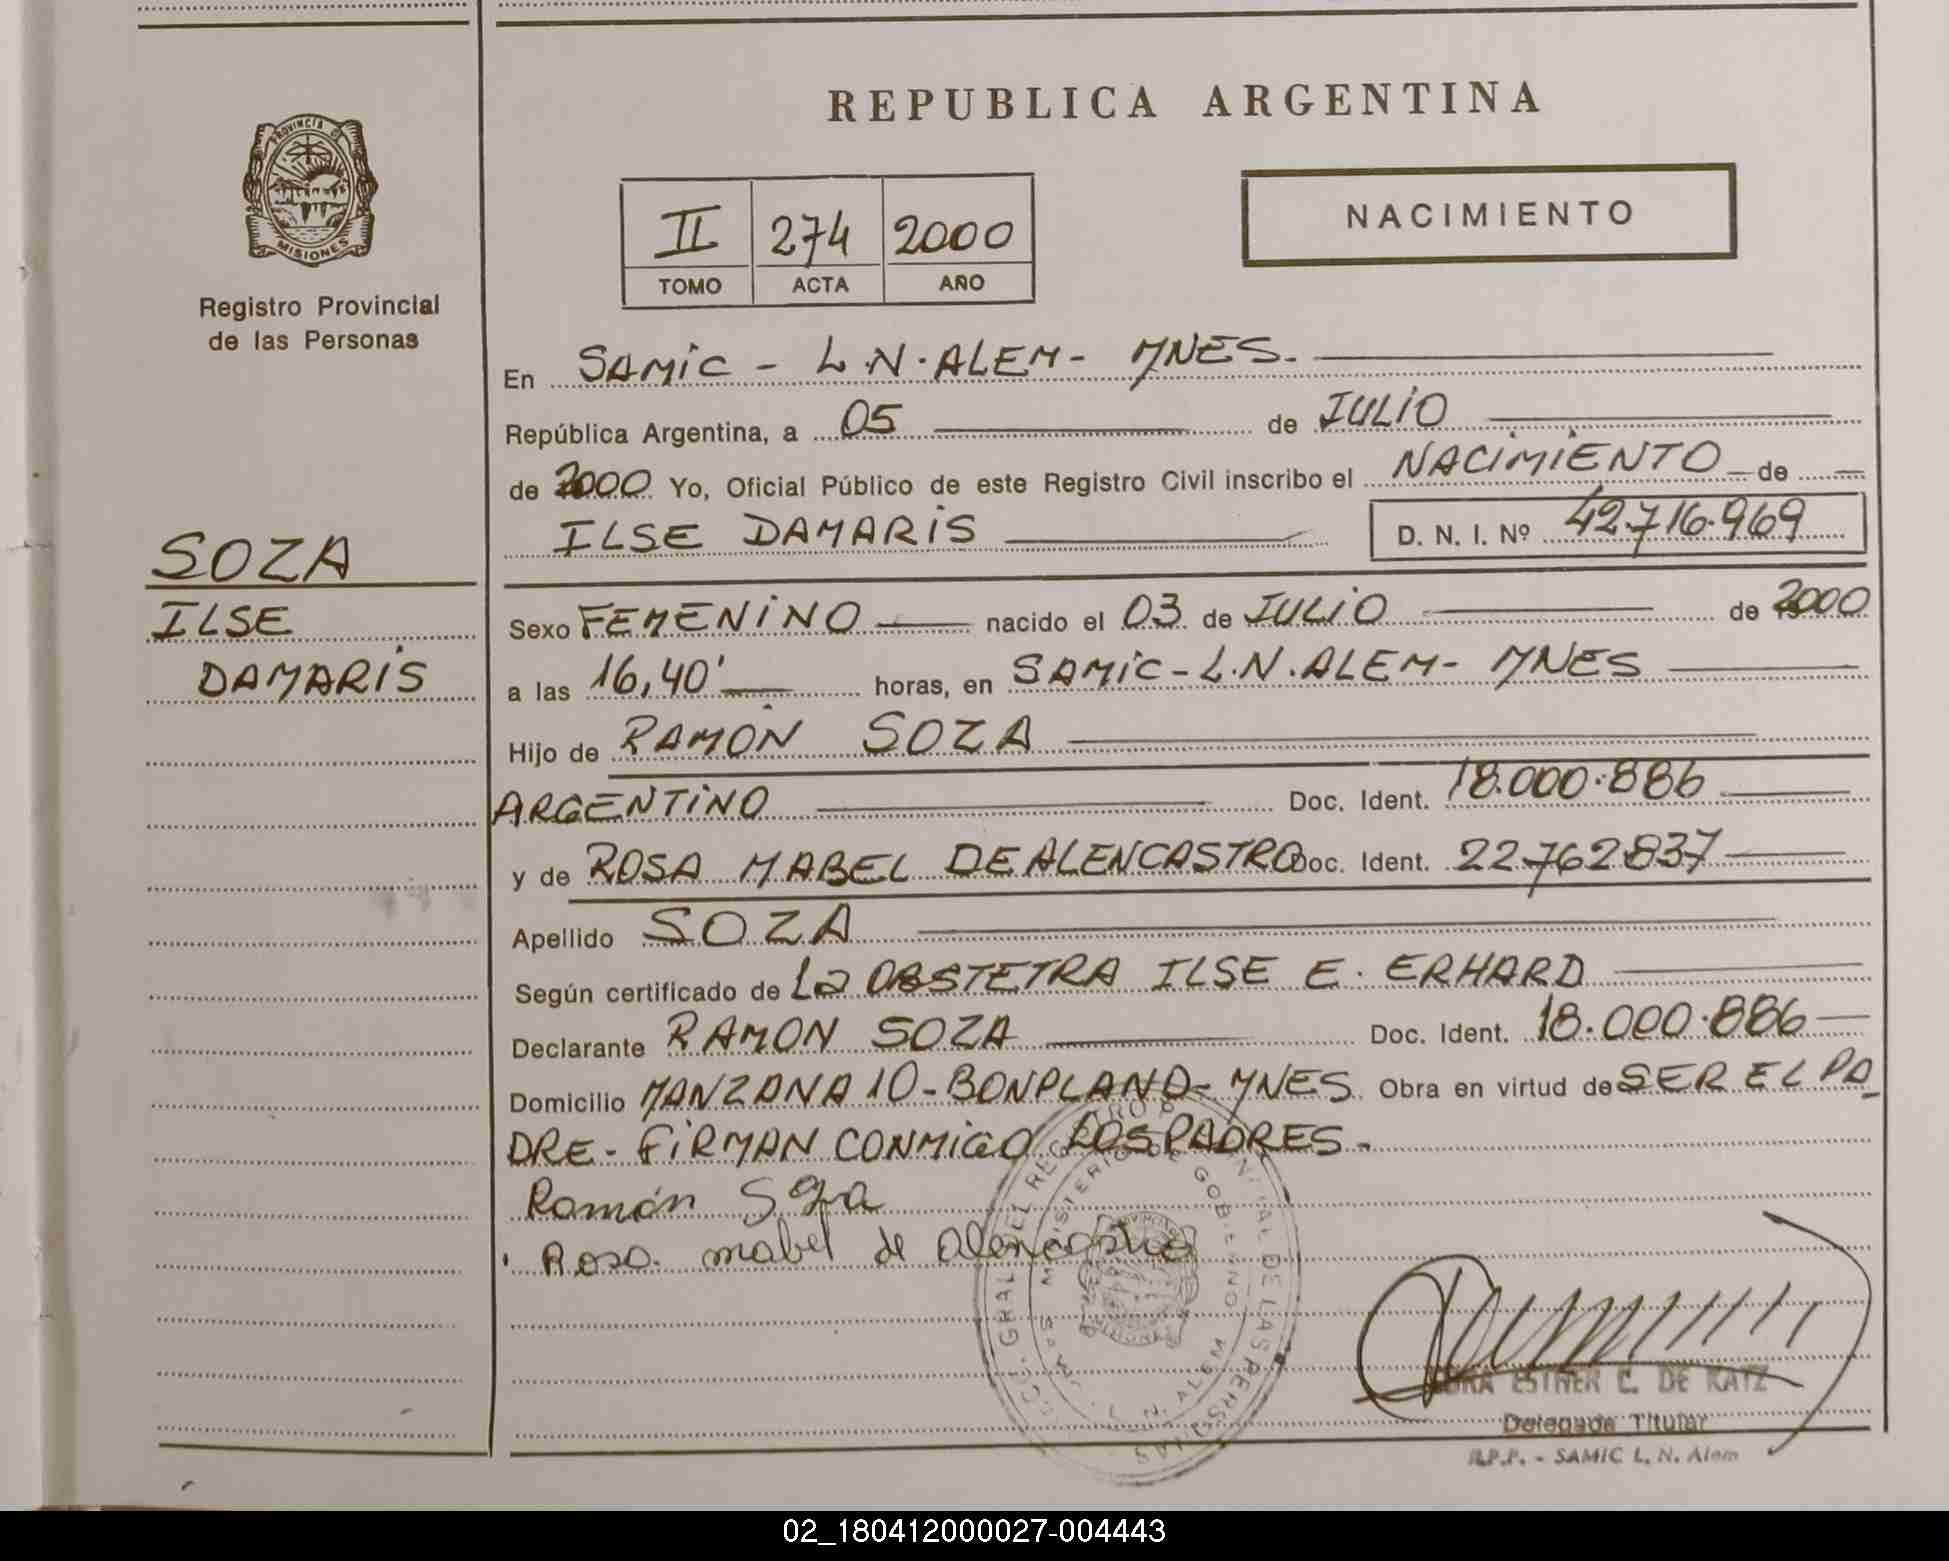 REPUBLICA ARGENTINA
PROVINCIA DE
MISIONES
Registro Provincial
de las Personas
NACIMIENTO
II 274 2000
TOMO ACTA AÑO
En SAMIC - L.N. ALEM - MNES.
República Argentina, a 05 de JULIO
de 2000 Yo, Oficial Público de este Registro Civil inscribo el NACIMIENTO de
ILSE DAMARIS D. N. I. Nº 42.716.969
SOZA
ILSE
DAMARIS
Sexo FEMENINO nacido el 03 de JULIO de 2000
a las 16,40' horas, en SAMIC - L.N. ALEM - MNES
Hijo de RAMÓN SOZA
ARGENTINO Doc. Ident. 18.000.886
y de ROSA MABEL DE ALENCASTRO Doc. Ident. 22.762.837
Apellido SOZA
Según certificado de La OBSTETRA ILSE E. ERHARD
Declarante RAMON SOZA Doc. Ident. 18.000.886
Domicilio MANZANA 10 - BONPLAND - MNES. Obra en virtud de SER EL PA
DRE - FIRMAN CONMIGO LOS PADRES.
Ramón Soza
Rosa mabel de alencastro
MINISTERIO DE GOBIERNO
L. N. ALEM
ESTHER C. DE KATZ
Delegada Titular
R.P.P. - SAMIC L. N. Alem
02_180412000027-004443